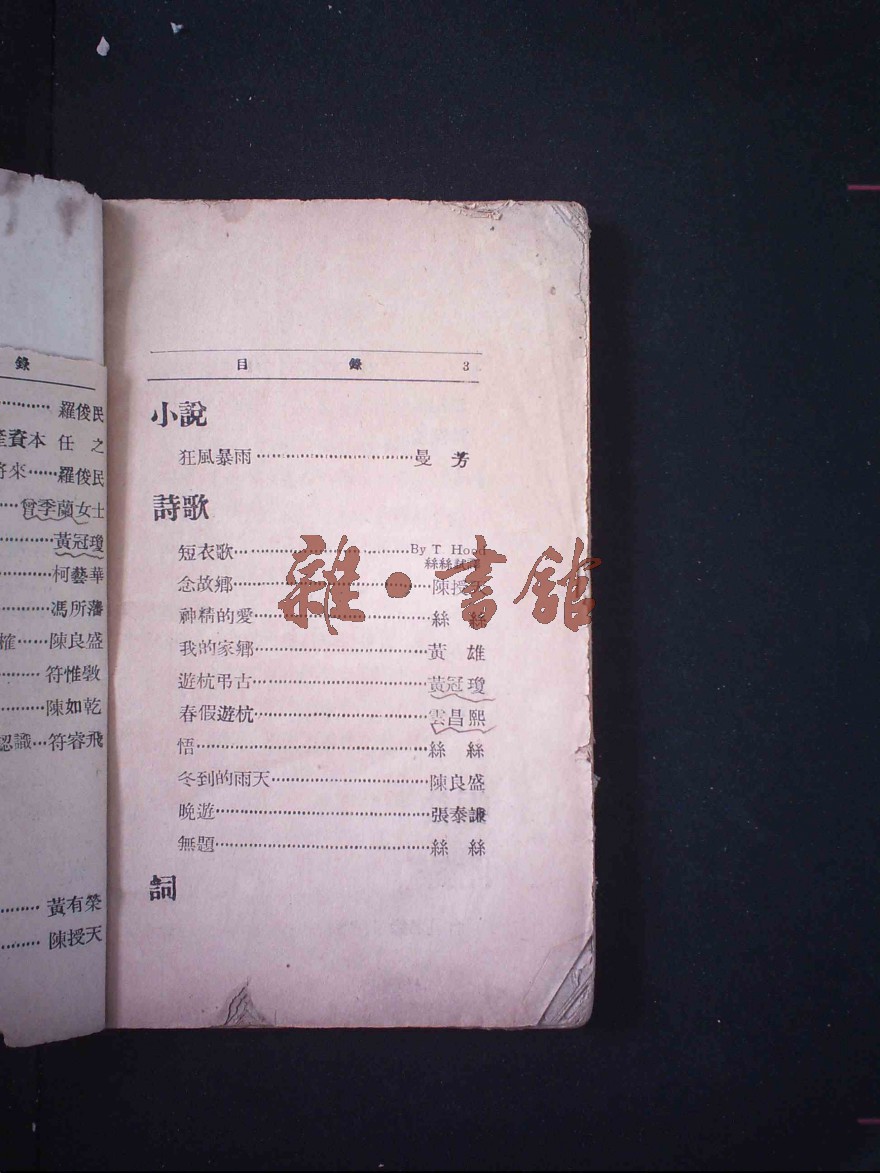 錄
羅俊民
資本 任 之
將來……羅俊民
曾季蘭女士
黃冠瓊
柯藝華
馮所藩
權……陳良盛
符惟敩
陳如乾
認識…符睿飛
黃有榮
陳授天
目 錄 3
小說
狂風暴雨……曼 芳
詩歌
短衣歌……By T Hood
絲絲
念故鄉……陳授天
神精的愛……絲 絲
我的家鄉……黃 雄
遊杭弔古……黃冠瓊
春假遊杭……雲昌熙
悟……絲 絲
冬到的雨天……陳良盛
晚遊……張泰謙
無題……絲 絲
詞
雜·書館